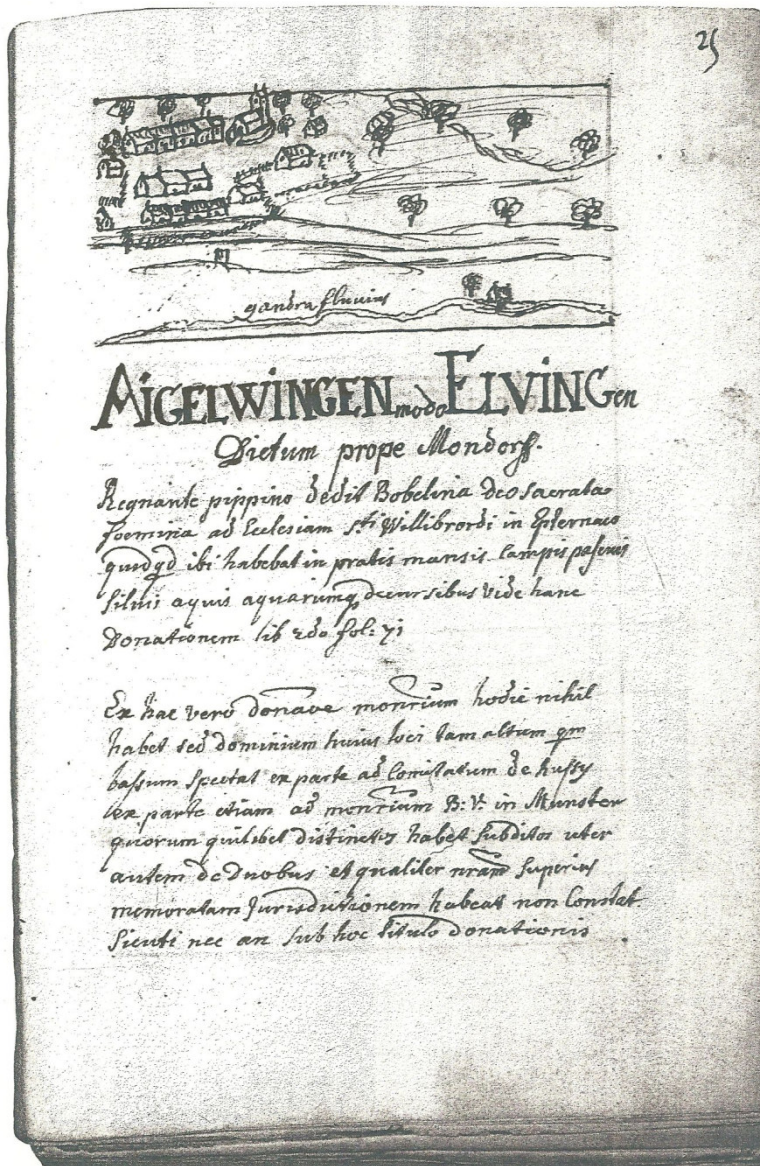 25
gandra fluvius
AIGELWINGEN modo ELVINGen
Dictum prope Mondorff.
Regnante pippino dedit Bobelina deo sacrata
foemina ad Ecclesiam sti Willibrordi in Epternaco
quidqd ibi habebat in pratis mansis campis pascuis
silvis aquis aquarumq decursibus vide hanc
Donationem lib 2do fol: 71
Ex hac vero donaoe monrium hodie nihil
habet sed dominium huius loci tam altum qm
bassum spectat ex parte ad Comitatum de hussy
ex parte etiam ad monrium B: V: in Munster
quorum quilibet distinctos habet subditos uter
autem de duobus et qualiter nram superius
memoratam Jurisdictionem habeat non Constat
Sicuti nec an sub hoc titulo donationis